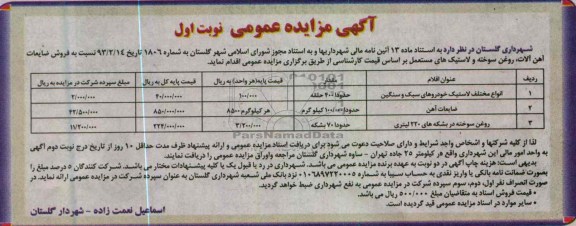 آگهی مزایده عمومی نوبت اول
شهرداری گلستان در نظر دارد به استناد ماده ۱۳ آئین نامه مالی شهرداریها و به استناد مجوز شورای اسلامی شهر گلستان به شماره ۱۸۰۶ تاریخ ۹۳/۲/۱۴ نسبت به فروش ضایعات
آهن آلات، روغن سوخته و لاستیک های مستعمل بر اساس قیمت کارشناسی از طریق برگزاری مزایده عمومی اقدام نماید.
ردیف عنوان اقلام قیمت پایه(هر واحد) به ریال قیمت پایه کل به ریال مبلغ سپرده شرکت در مزایده به ریال
۱ انواع مختلف لاستیک خودروهای سبک و سنگین حدودا ۴۰۰ حلقه ۱۰۰/۰۰۰ ۴۰/۰۰۰/۰۰۰ ۲/۰۰۰/۰۰۰
۲ ضایعات آهن حدودا ۱۰۰/۰۰۰ کیلو گرم هر کیلوگرم ۸۵۰۰ ۸۵۰/۰۰۰/۰۰۰ ۴۲/۵۰۰/۰۰۰
۳ روغن سوخته در بشکه های ۲۲۰ لیتری حدودا ۷۰ بشکه ۳/۲۰۰/۰۰۰ ۲۲۴/۰۰۰/۰۰۰ ۱۱/۲۰۰/۰۰۰
ParsNamadData
لذا از کلیه شرکتها و اشخاص واجد شرایط و دارای صلاحیت دعوت می شود برای دریافت اسناد مزایده عمومی و ارائه پیشنهاد ظرف مدت حداقل ۱۰ روز از تاریخ درج نوبت دوم آگهی
به واحد امور مالی این شهرداری واقع در کیلومتر ۲۵ جاده تهران - ساوه شهرداری گلستان مراجعه واوراق مزایده عمومی را دریافت نمایند.
بدیهی است: هزینه چاپ آگهی در دو نوبت به عهده برنده مزایده عمومی می باشد. شهرداری در رد یا قبول یک یا کلیه پیشنهادات مختار می باشد. شرکت کنندگان ۵ درصد مبلغ را
بصورت ضمانت نامه بانکی یا واریز نقدی به حساب سیبا به شماره ۰۱۰۶۸۹۷۲۲۰۰۰۵ نزد بانک ملی شعبه شهرداری گلستان به عنوان سپرده شرکت در مزایده عمومی ارائه نمایند. در
صورت انصراف نفر اول، دوم، سوم سپرده شرکت در مزایده عمومی به نفع شهرداری ضبط خواهد گردید.
• قیمت فروش اسناد به متقاضیان مبلغ ۵۰۰/۰۰۰ ریال می باشد.
• سایر موارد در اسناد مزایده عمومی قید گردیده است.
اسماعیل نعمت زاده - شهردار گلستان